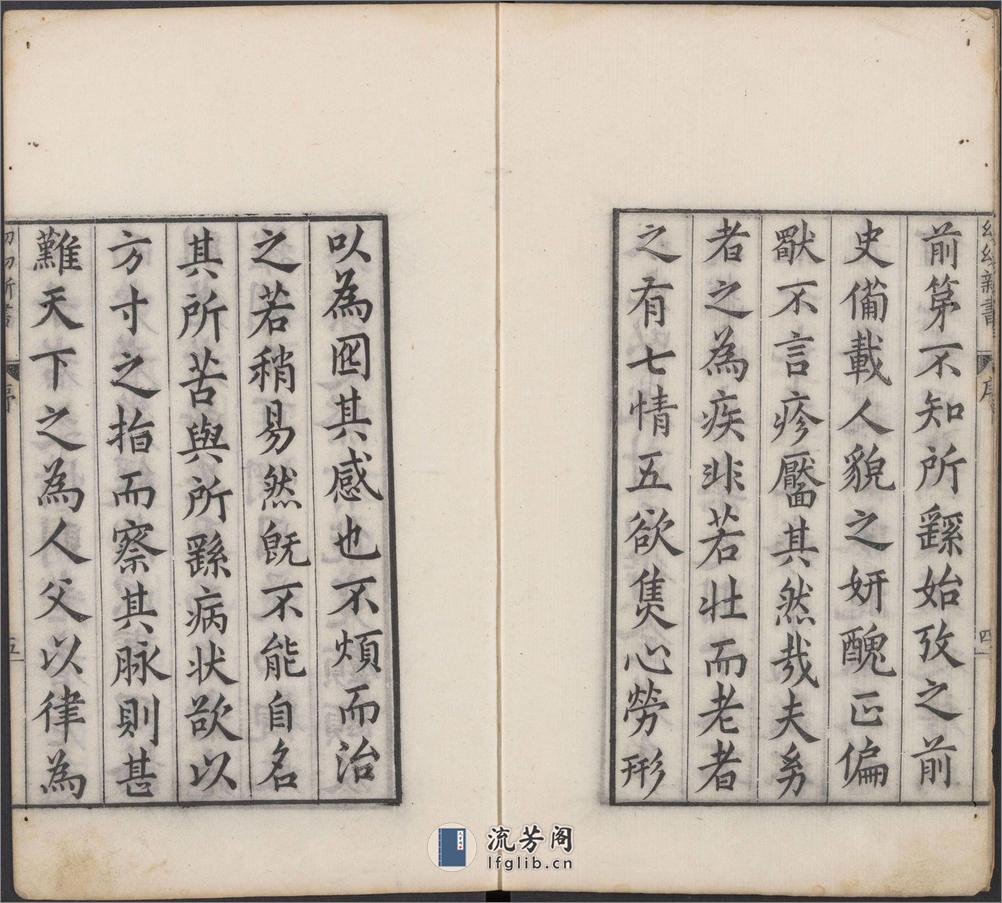 幼幼新書
序
四
前第不知所繇始攷之前
史備載人貌之妍醜正偏
獨不言疹靨其然哉夫幼
者之為疾非若壯而老者
之有七情五欲焦心勞形
以為因其感也不煩而治
之若稍易然既不能自名
其所苦與所繇病狀欲以
方寸之指而察其脉則甚
難天下之為人父以律為
幼幼新書
序
五
流芳阁
lfglib.cn